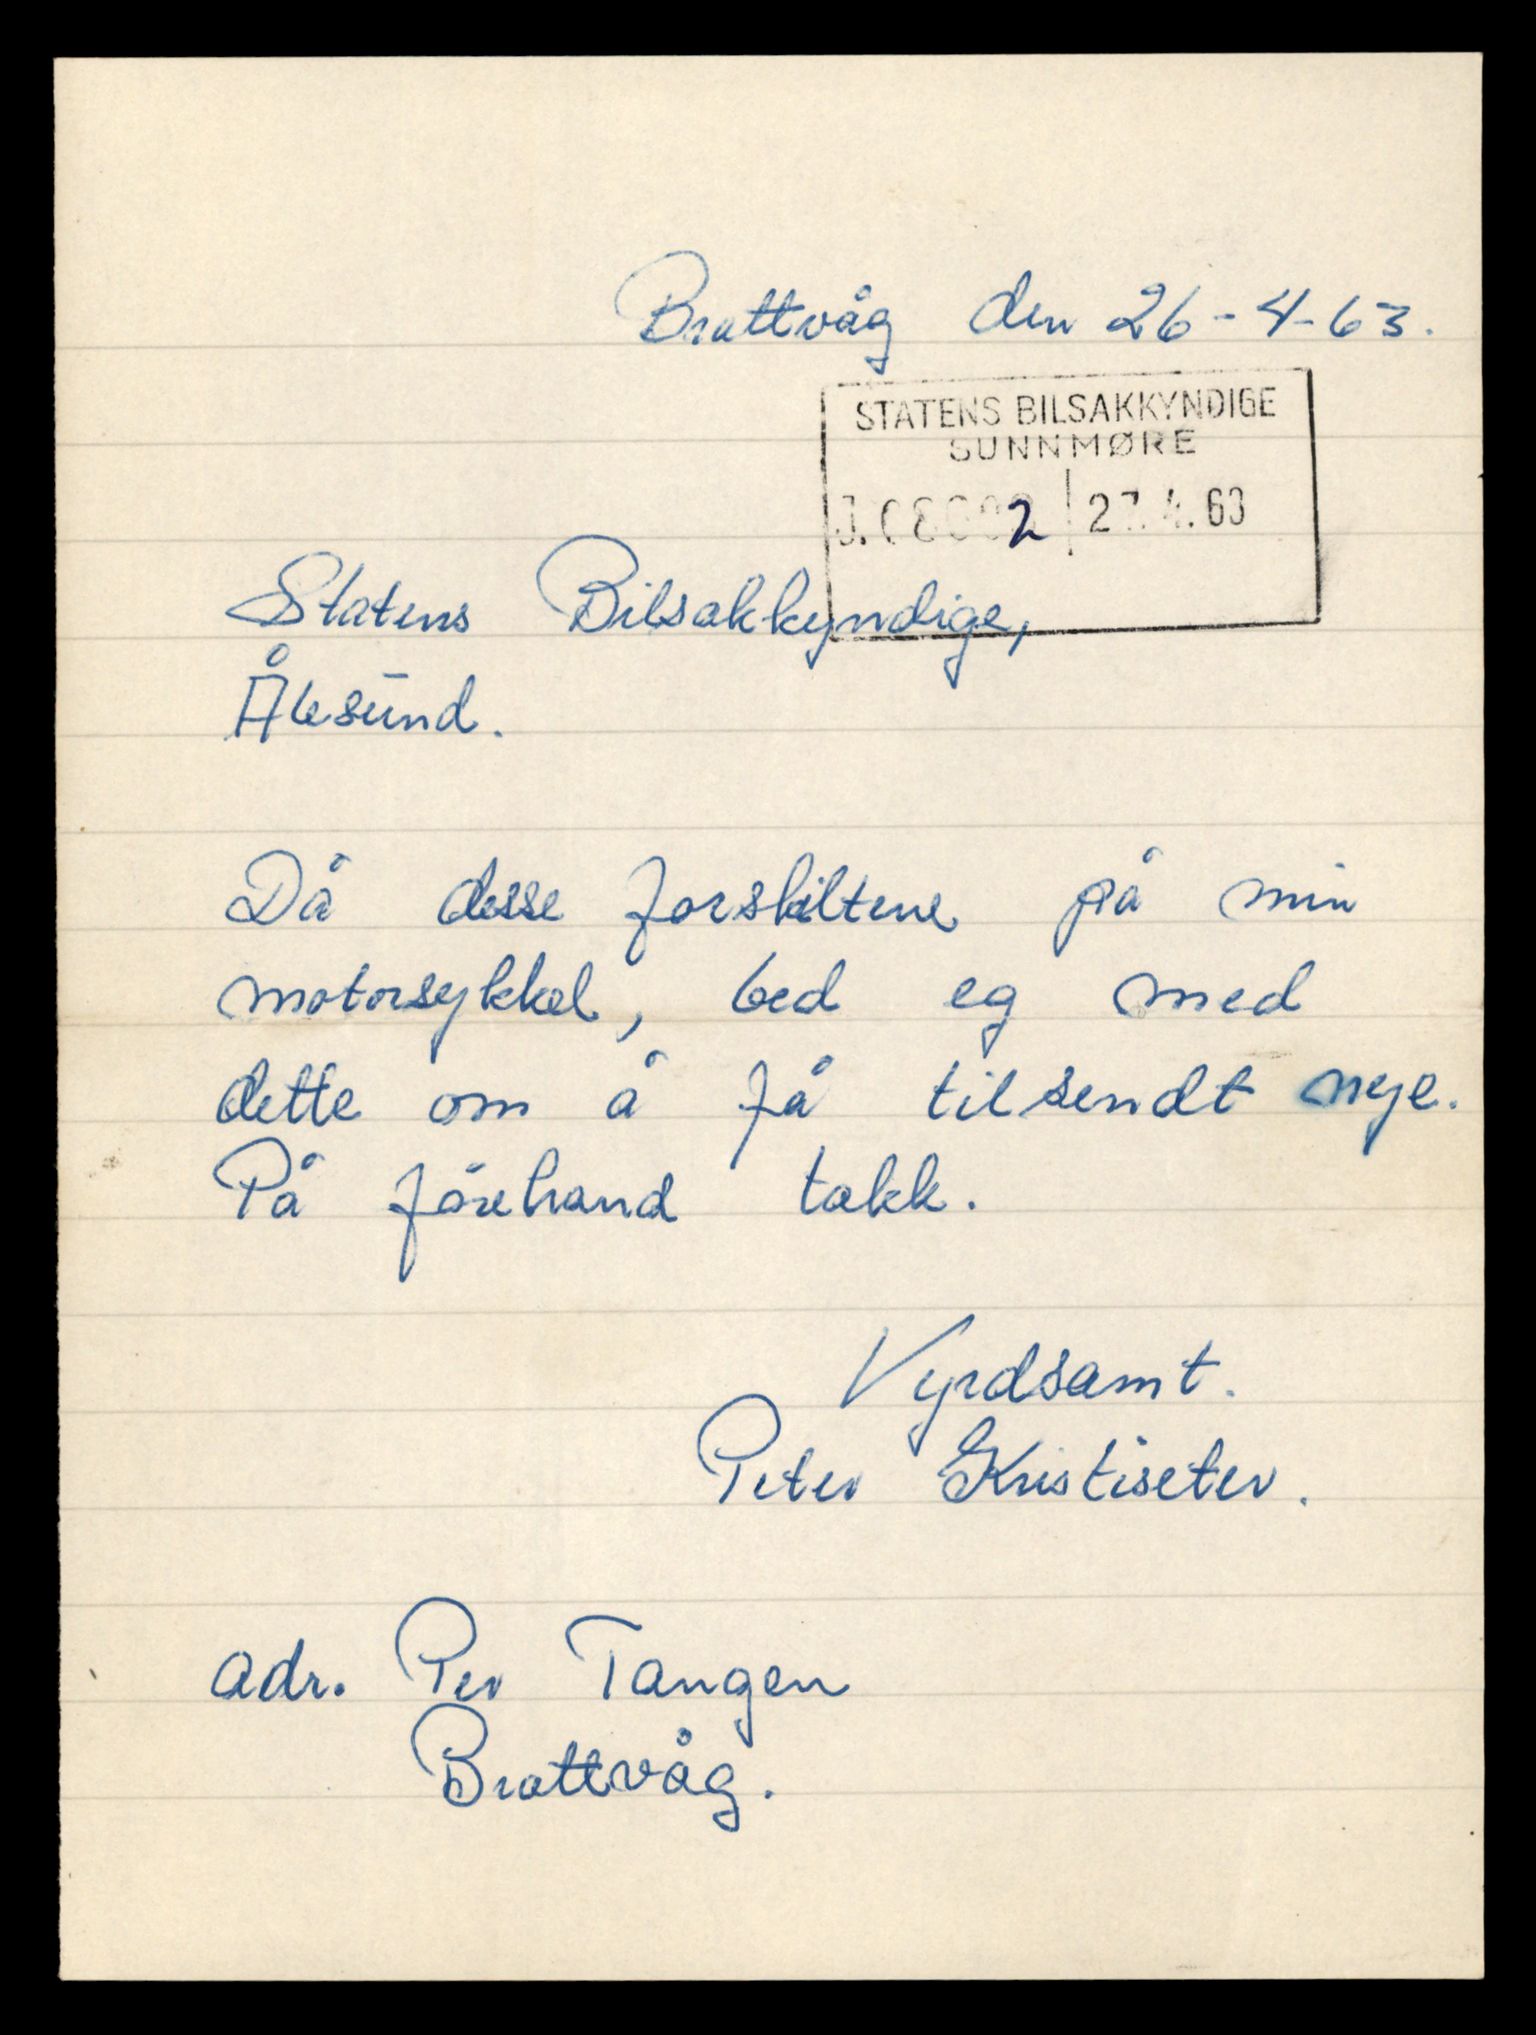 Brattvåg den 26-4-63.
STATENS BILSAKKYNDIGE
SUNNMØRE
27.4.63
Statens Bilsakkyndige,
Ålesund.
Då desse forskiltene på min
motorsykkel, bed eg med
dette om å få tilsendt nye.
På førehand takk.
Vyrdsamt.
Peter Kristiseter.
adr. Per Tangen
Brattvåg.